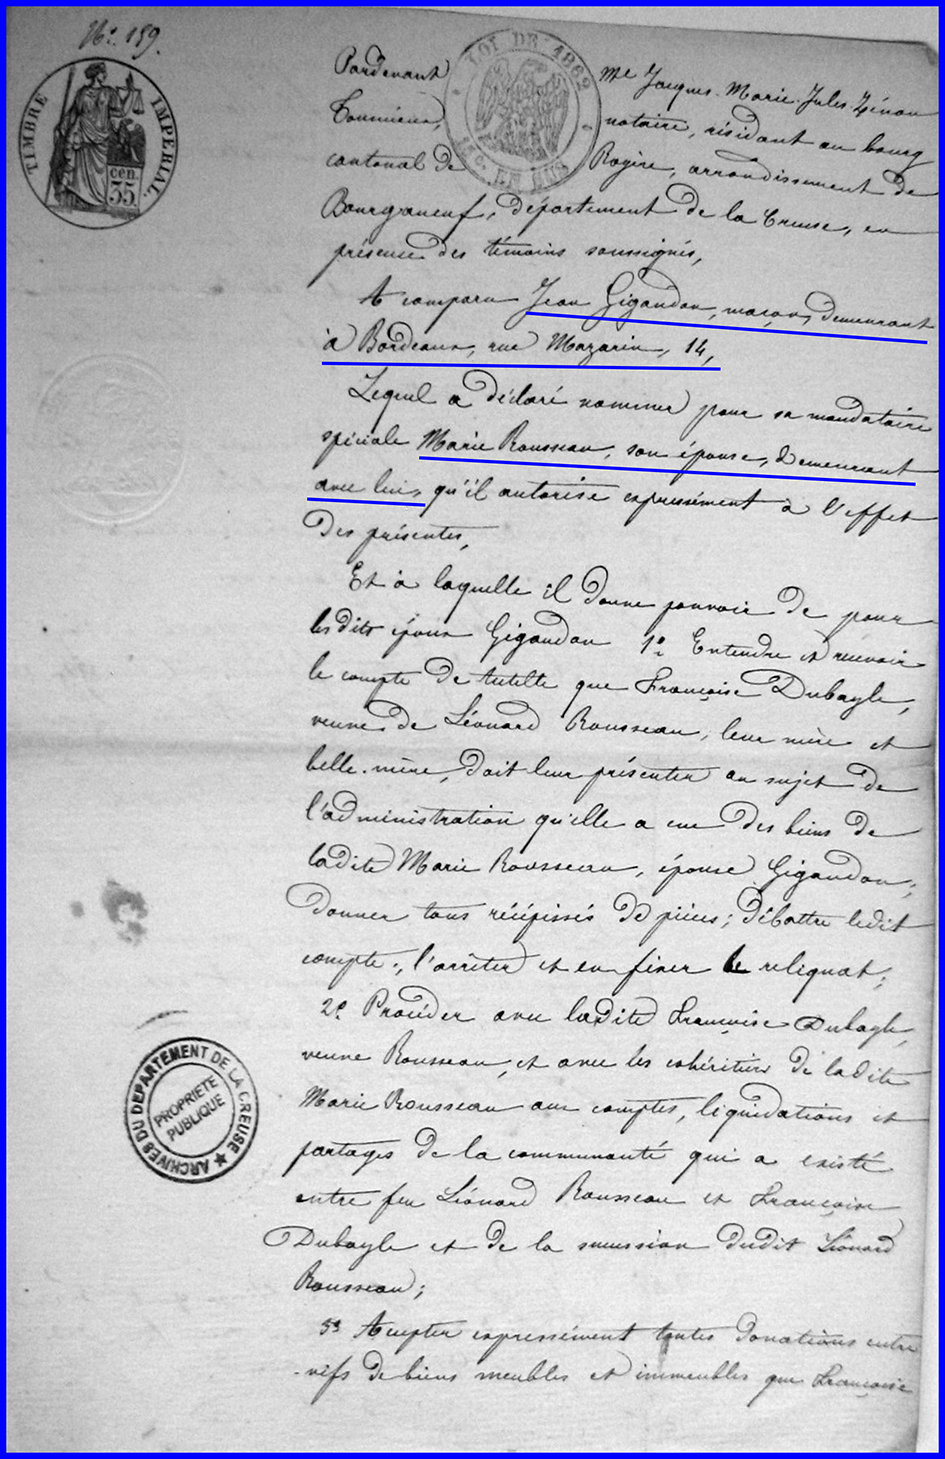 No. 159.
TIMBRE IMPERIAL.
cen.
35
LOI DE 1862
EN SUS
Pardevant Me Jacques-Marie-Jules-Zénon
notaire, résidant au bourg
cantonal de Royère, arrondissement de
Bourganeuf, département de la Creuse, en
présence des témoins soussignés,
A comparu Jean Gigaudon, maçon, demeurant
à Bordeaux, rue Mazarin, 14,
Lequel a déclaré nommer pour sa mandataire
spéciale Marie Rousseau, son épouse, demeurant
avec lui, qu'il autorise expressément à l'effet
des présentes,
Et à laquelle il donne pouvoir de pour
lesdits époux Gigaudon 1o Entendre et recevoir
le compte de tutelle que Françoise Dubayle,
veuve de Léonard Rousseau, leur mère et
belle-mère, doit leur présenter au sujet de
l'administration qu'elle a eue des biens de
ladite Marie Rousseau, épouse Gigaudon;
donner tous récépissés de pièces; débattre ledit
compte, l'arrêter et en fixer le reliquat;
2o Procéder avec ladite Françoise Dubayle,
veuve Rousseau, et avec les cohéritiers de ladite
Marie Rousseau aux comptes, liquidations et
partages de la communauté qui a existé
entre feu Léonard Rousseau et Françoise
Dubayle et de la succession dudit Léonard
Rousseau;
3o Accepter expressément toutes donations entre
vifs de biens meubles et immeubles que Françoise
ARCHIVES DU DEPARTEMENT DE LA CREUSE
PROPRIETE
PUBLIQUE